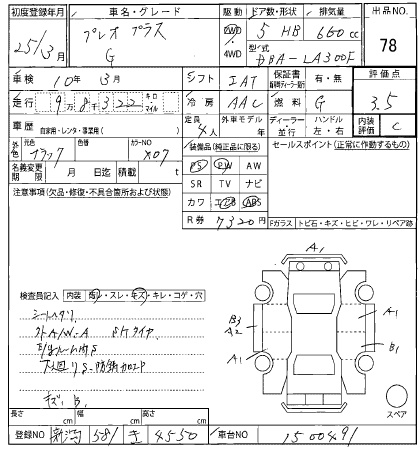 初度登録年月 車名・グレード 駆動 ドア数・形状 排気量 出品NO.
25/3月 プレオ プラス G 2WD ・4WD 5 HB 660cc 78
型式 DBA-LA300F
車検 10年 3月 シフト IAT 保証書 有・無 評価点 3.5
走行 9万8千322 キロ・マイル 冷房 AAC 燃料 G
車歴 自家用・レンタ・事業用( ) 定員 4人 外車モデル 年 ディーラー・並行 ハンドル 左・右 内装評価 C
外色 元色 ブラック 色番 カラーNO X07 装備品(純正品に限る) セールスポイント(正常に作動するもの)
PS PW AW
名義変更期限 月 日迄 積載 t SR TV ナビ
注意事項(欠品・修復・不具合箇所および状態) カワ エアB ABS
R券 7320円
Fガラス トビ石・キズ・ヒビ・ワレ・リペア跡
A1
検査員記入 内装 ・スレ・キズ・キレ・コゲ・穴
B3
A2
A1
A1
B1
A/W-A
キズ、B1
スペア
長さ cm 幅 cm 高さ cm
登録NO 新潟 581 き 4550 車台NO 1500491